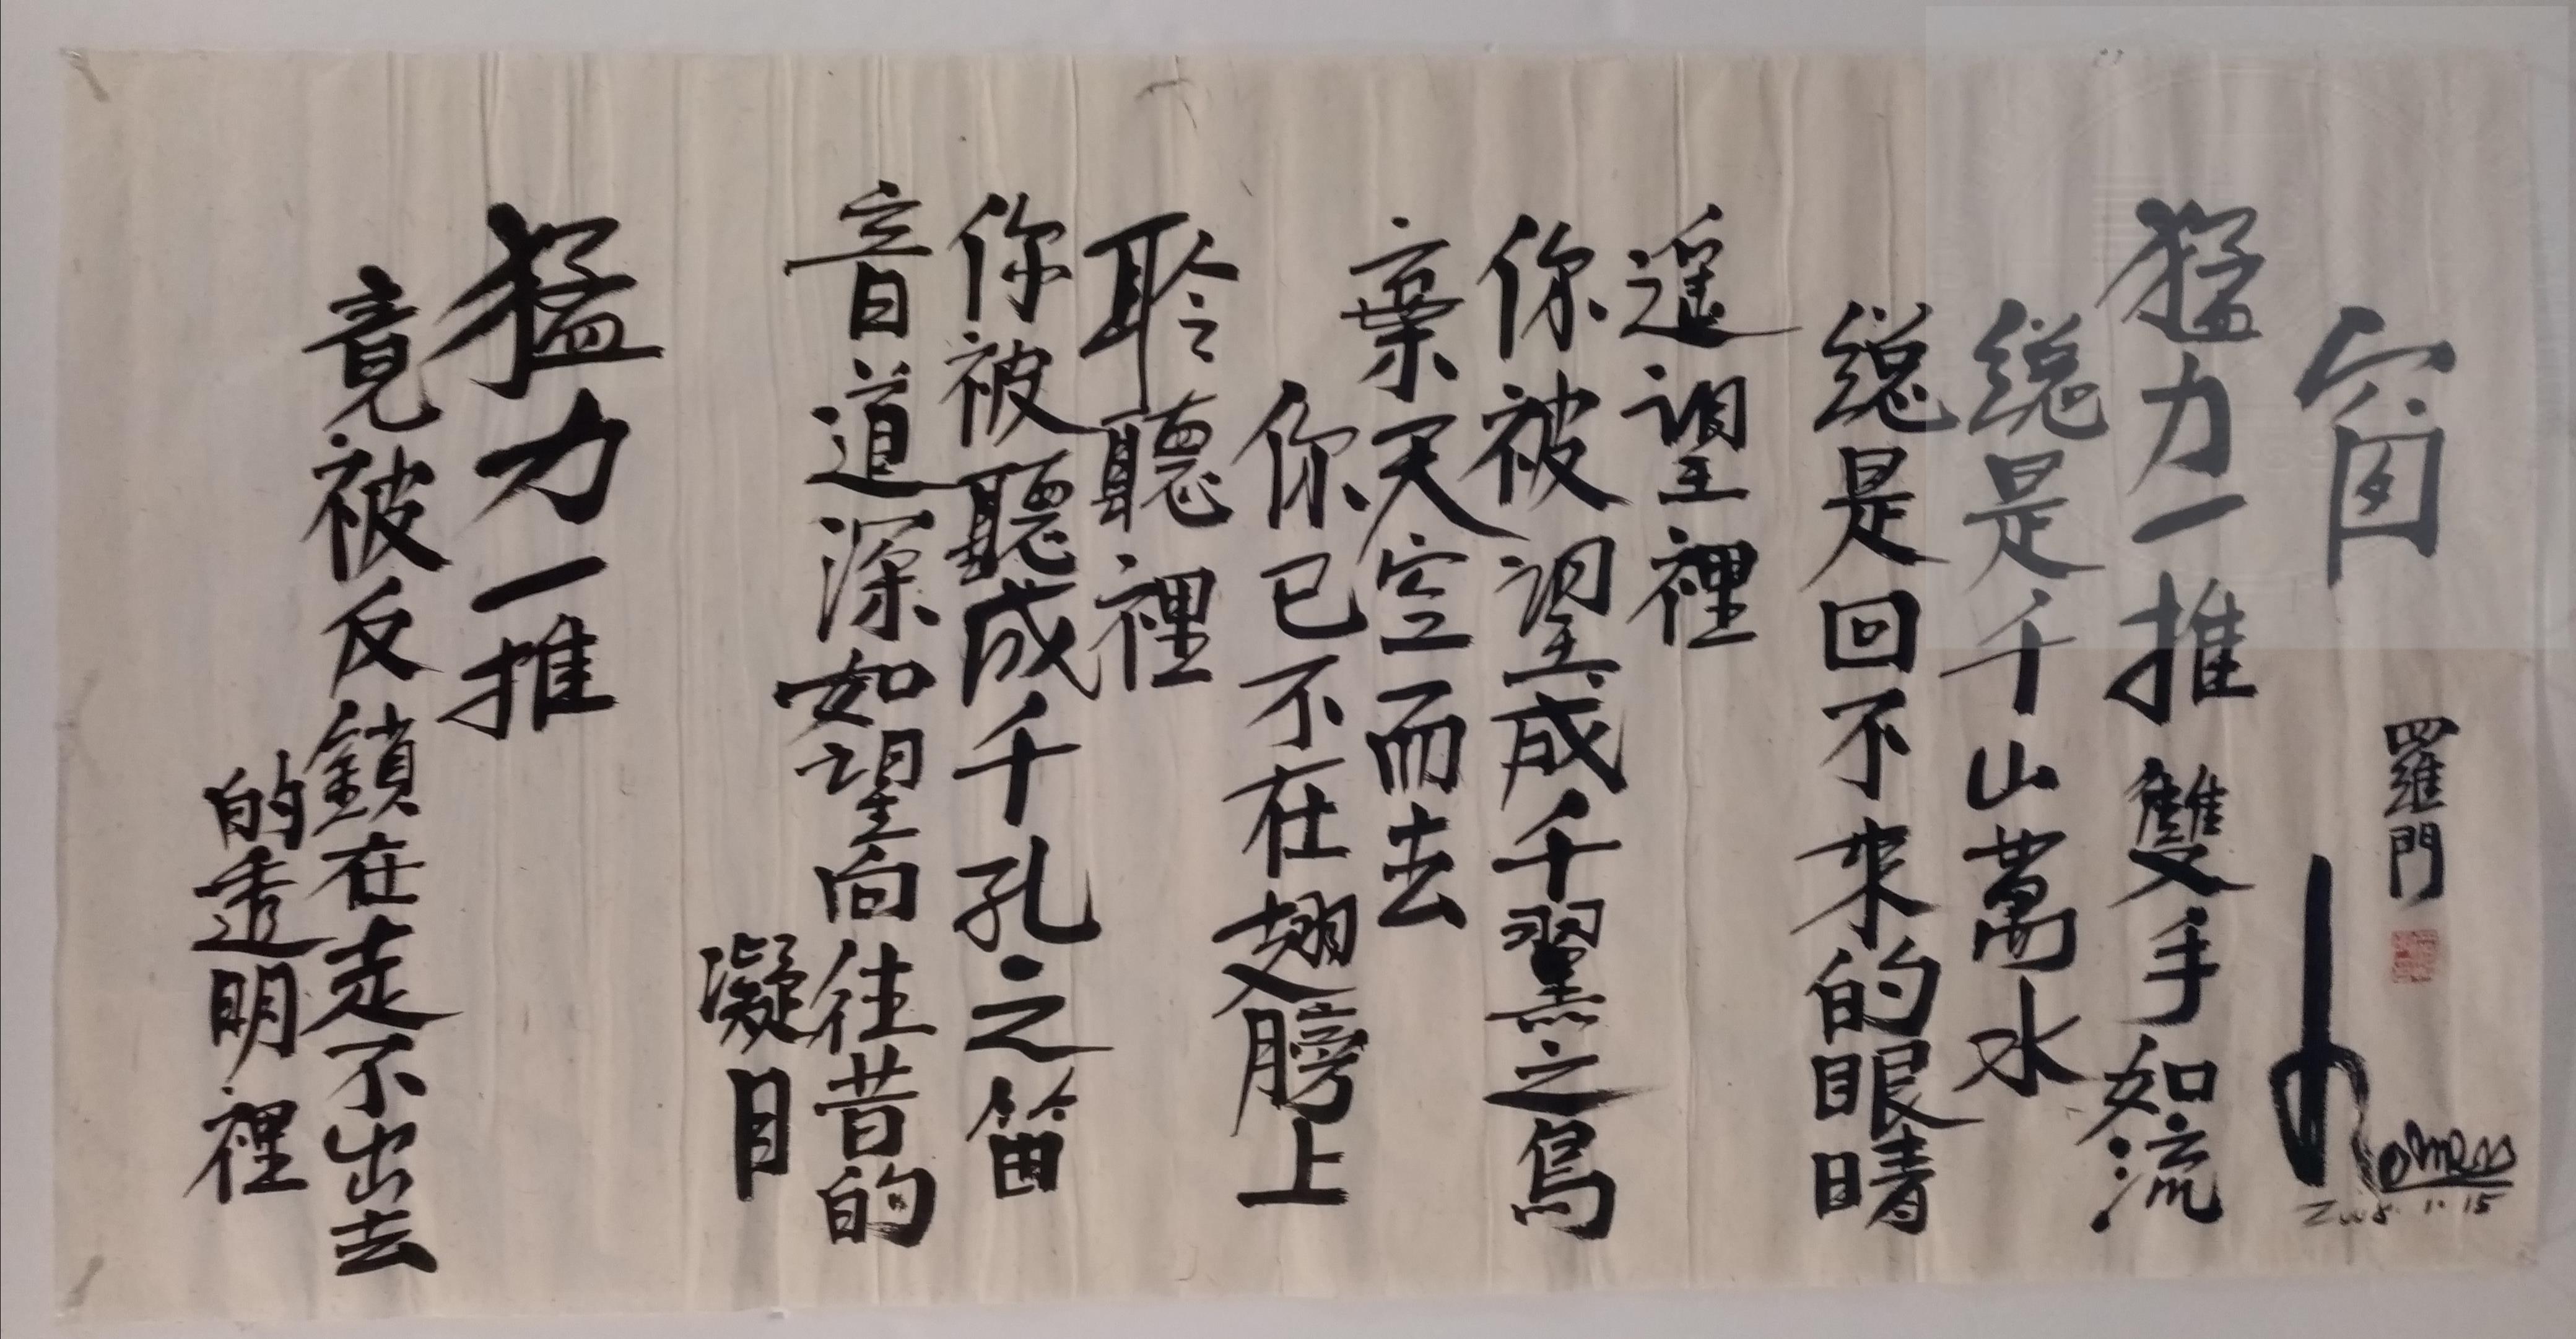 窗
羅門
猛力一推 雙手如流
總是千山萬水
總是回不來的眼睛
遥望裡
你被望成千翼之鳥
棄天空而去
你已不在翅膀上
聆聽裡
你被聽成千孔之笛
音道深如望向往昔的
凝目
猛力一推
竟被反鎖在走不出去
的透明裡